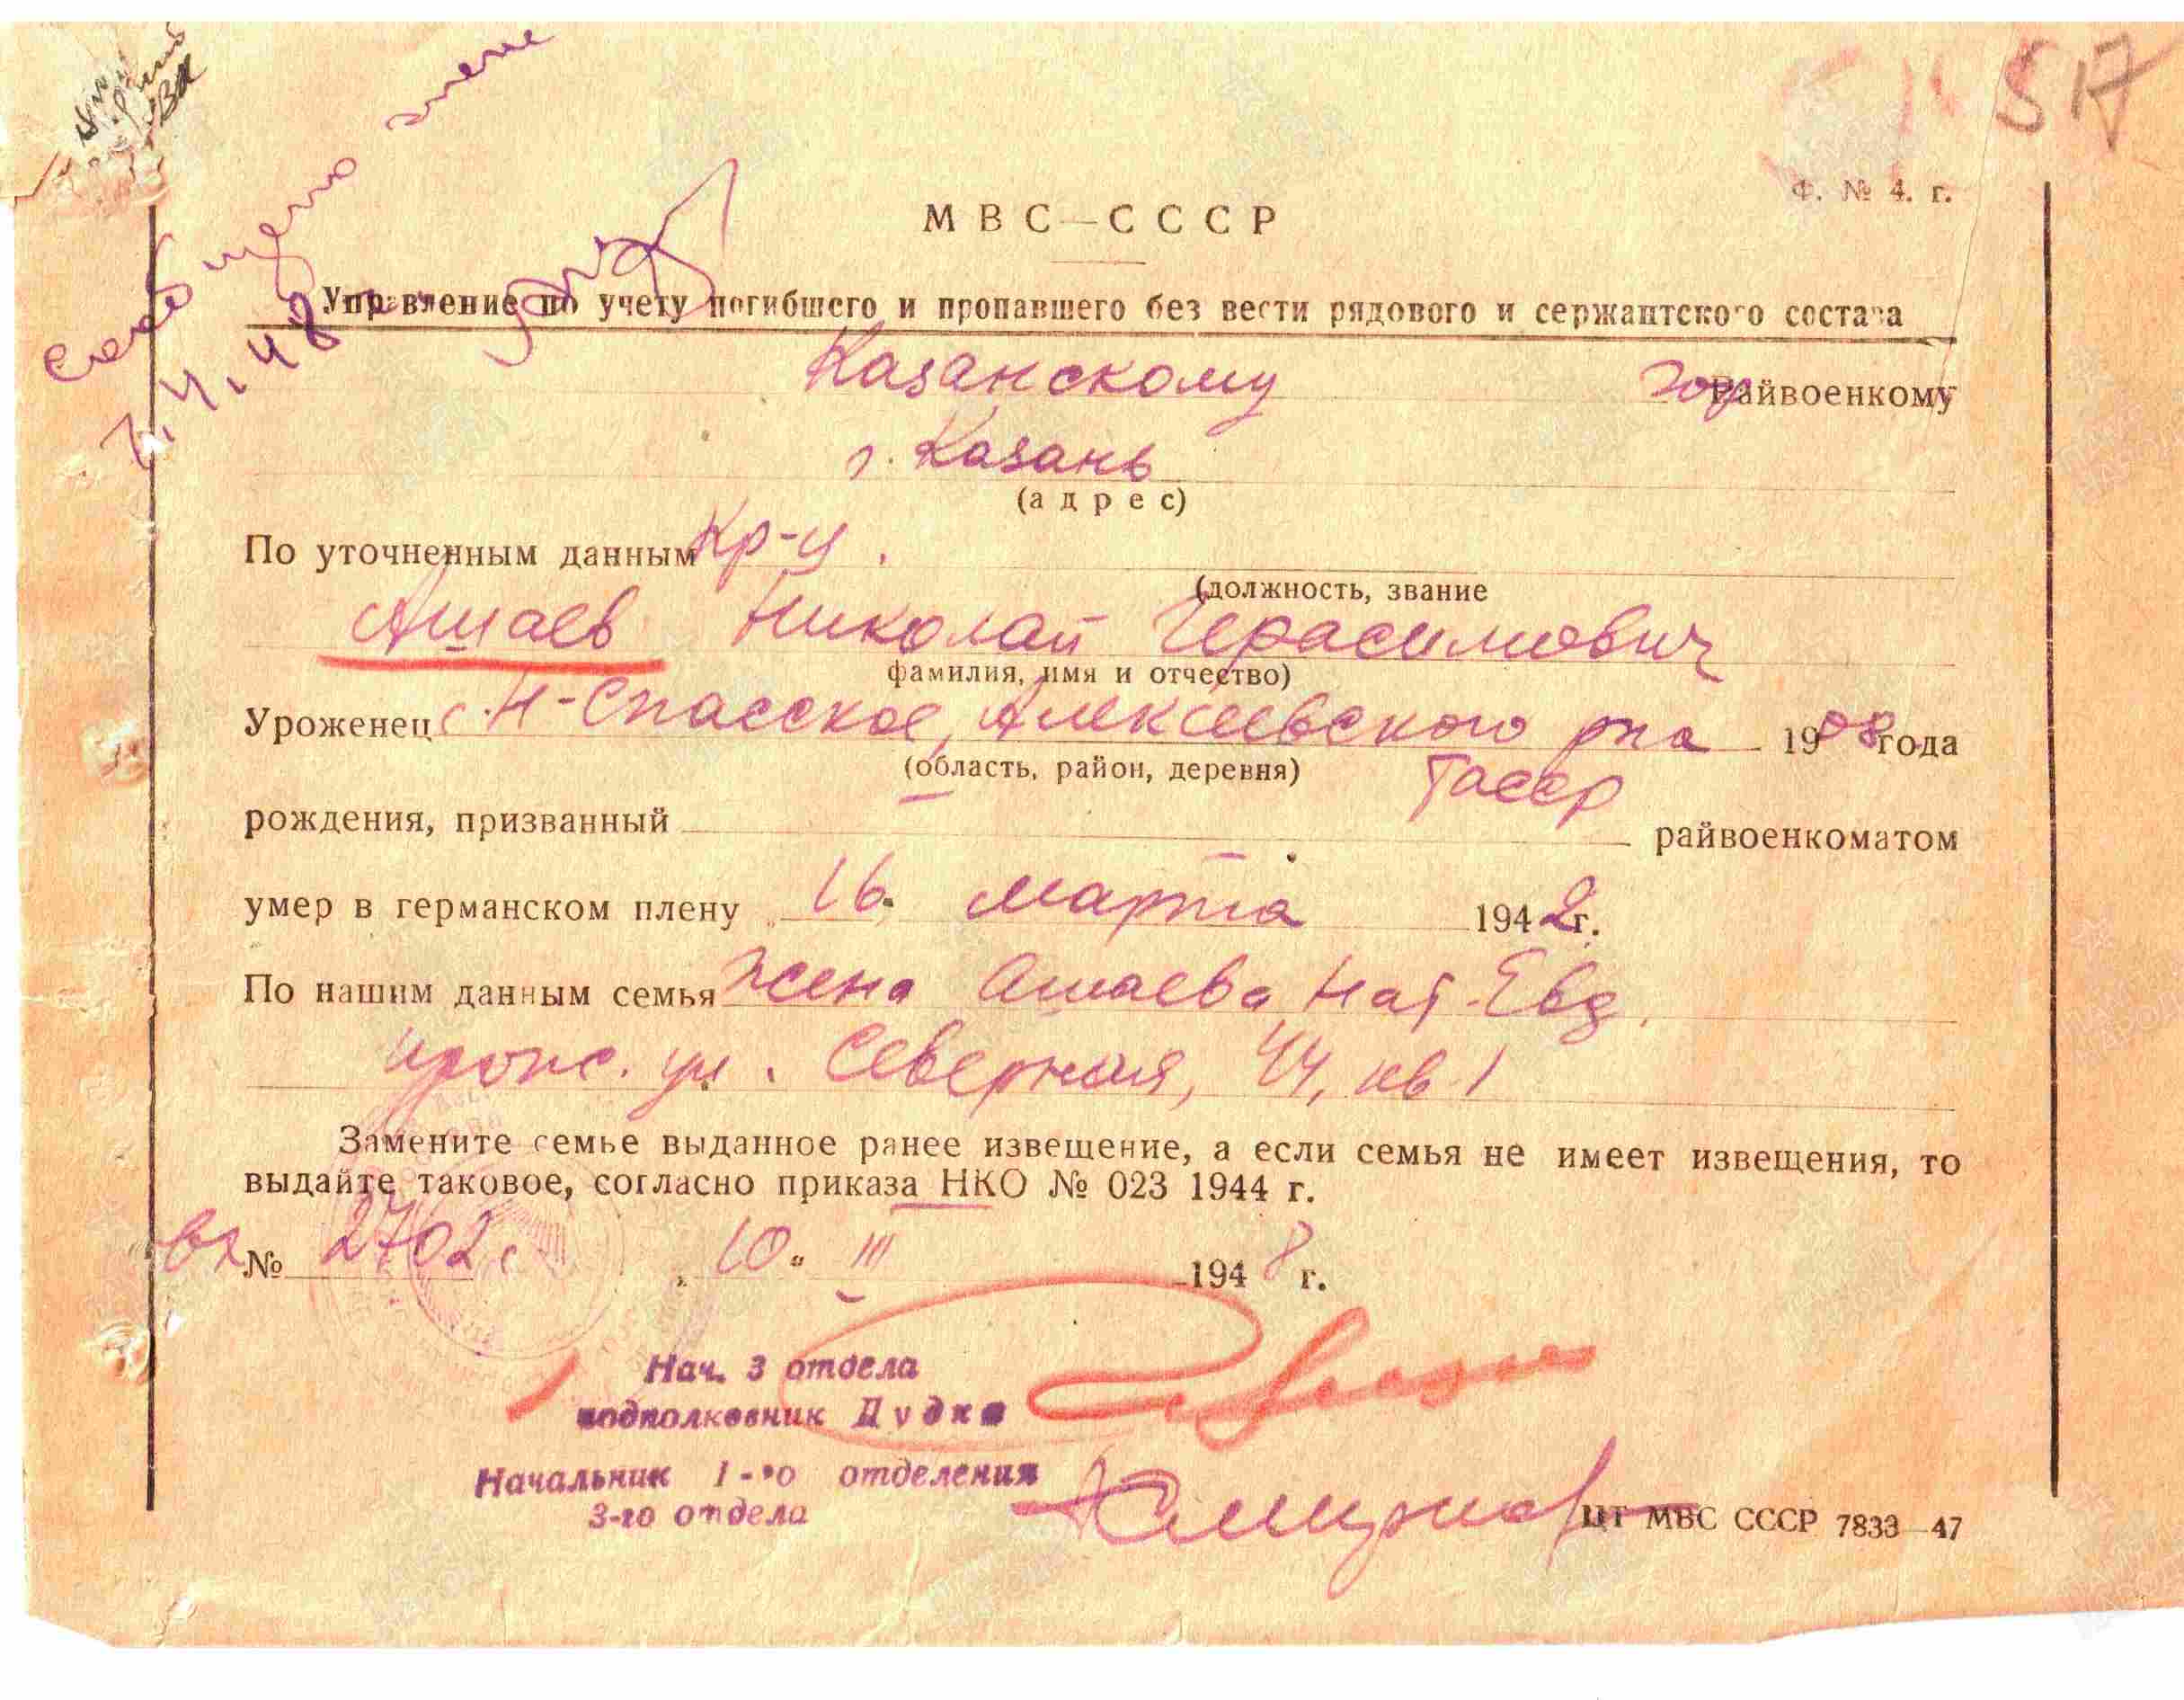 517
Ф. № 4. г.
МВС—СССР
Сообщено жене
7.4.48
Управление по учету погибшего и пропавшего без вести рядового и сержантского состава
Казанскому Гор Райвоенкому
г. Казань
(адрес)
По уточненным данным Кр-ц.
(должность, звание
Ашаев Николай Герасимович
фамилия, имя и отчество)
Уроженец с. Н-Спасское, Алексеевского р-на 1908 года
(область, район, деревня) Тасср
рождения, призванный райвоенкоматом
умер в германском плену 16. марта 1942 г.
По нашим данным семья Жена Ашаева Нат. Евд.
прож. ул. Северная, 44, кв. 1
Замените семье выданное ранее извещение, а если семья не имеет извещения, то
выдайте таковое, согласно приказа НКО № 023 1944 г.
№ 2702с 10. III 1948 г.
Нач. 3 отдела
подполковник Дудка
Начальник 1-го отделения
3-го отдела
ЦТ МВС СССР 7833—47